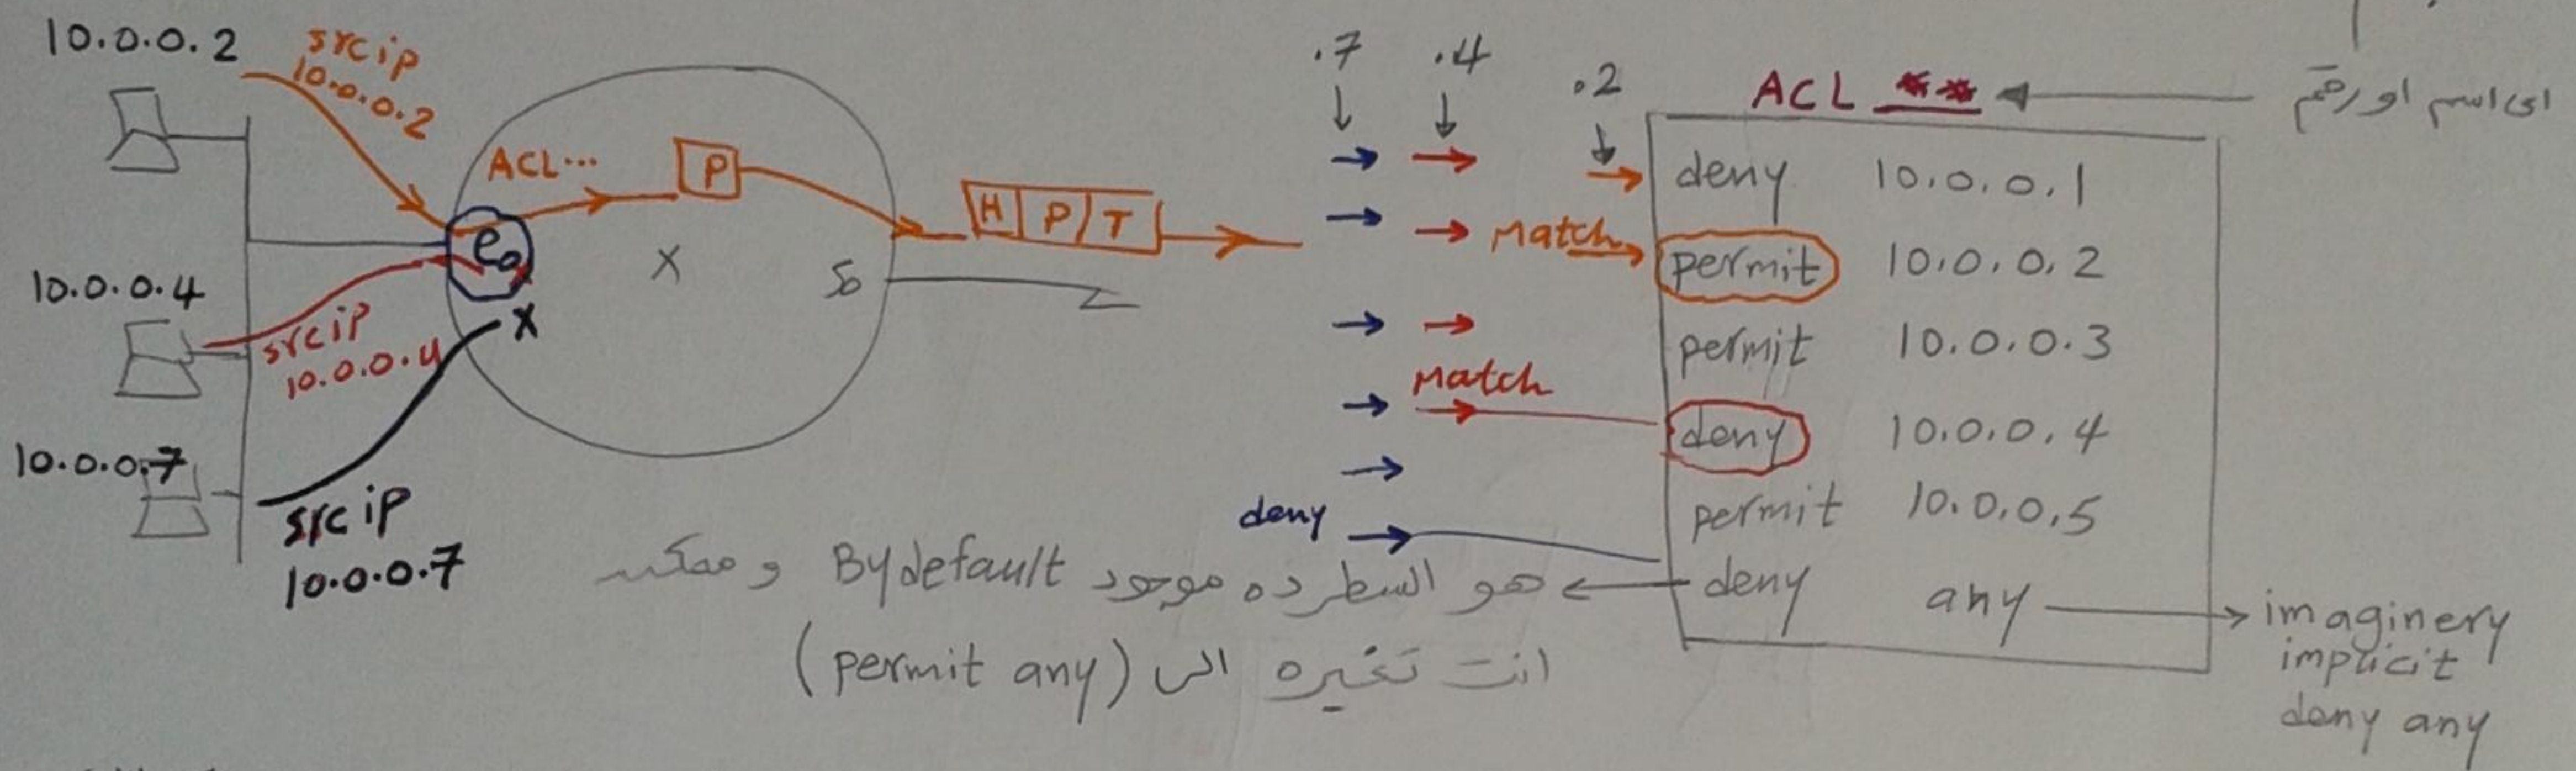 10.0.0.2
src ip
10.0.0.2
ACL...
P
H P T
e0
X
S0
10.0.0.4
src ip
10.0.0.4
X
10.0.0.7
src ip
10.0.0.7
.7 .4 .2
Match
Match
deny
ACL **
اى اسم او رقم
deny 10.0.0.1
permit 10.0.0.2
permit 10.0.0.3
deny 10.0.0.4
permit 10.0.0.5
deny any
imaginery
implicit
deny any
هو السطر ده موجود By default و ممكن
انت تغيره الى (permit any)